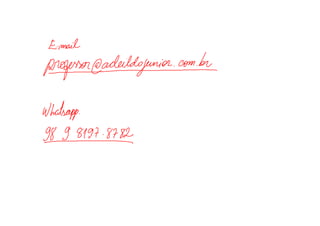 Email
professor@adeildojunior.com.br
Whatsapp.
98 9.8197-8782